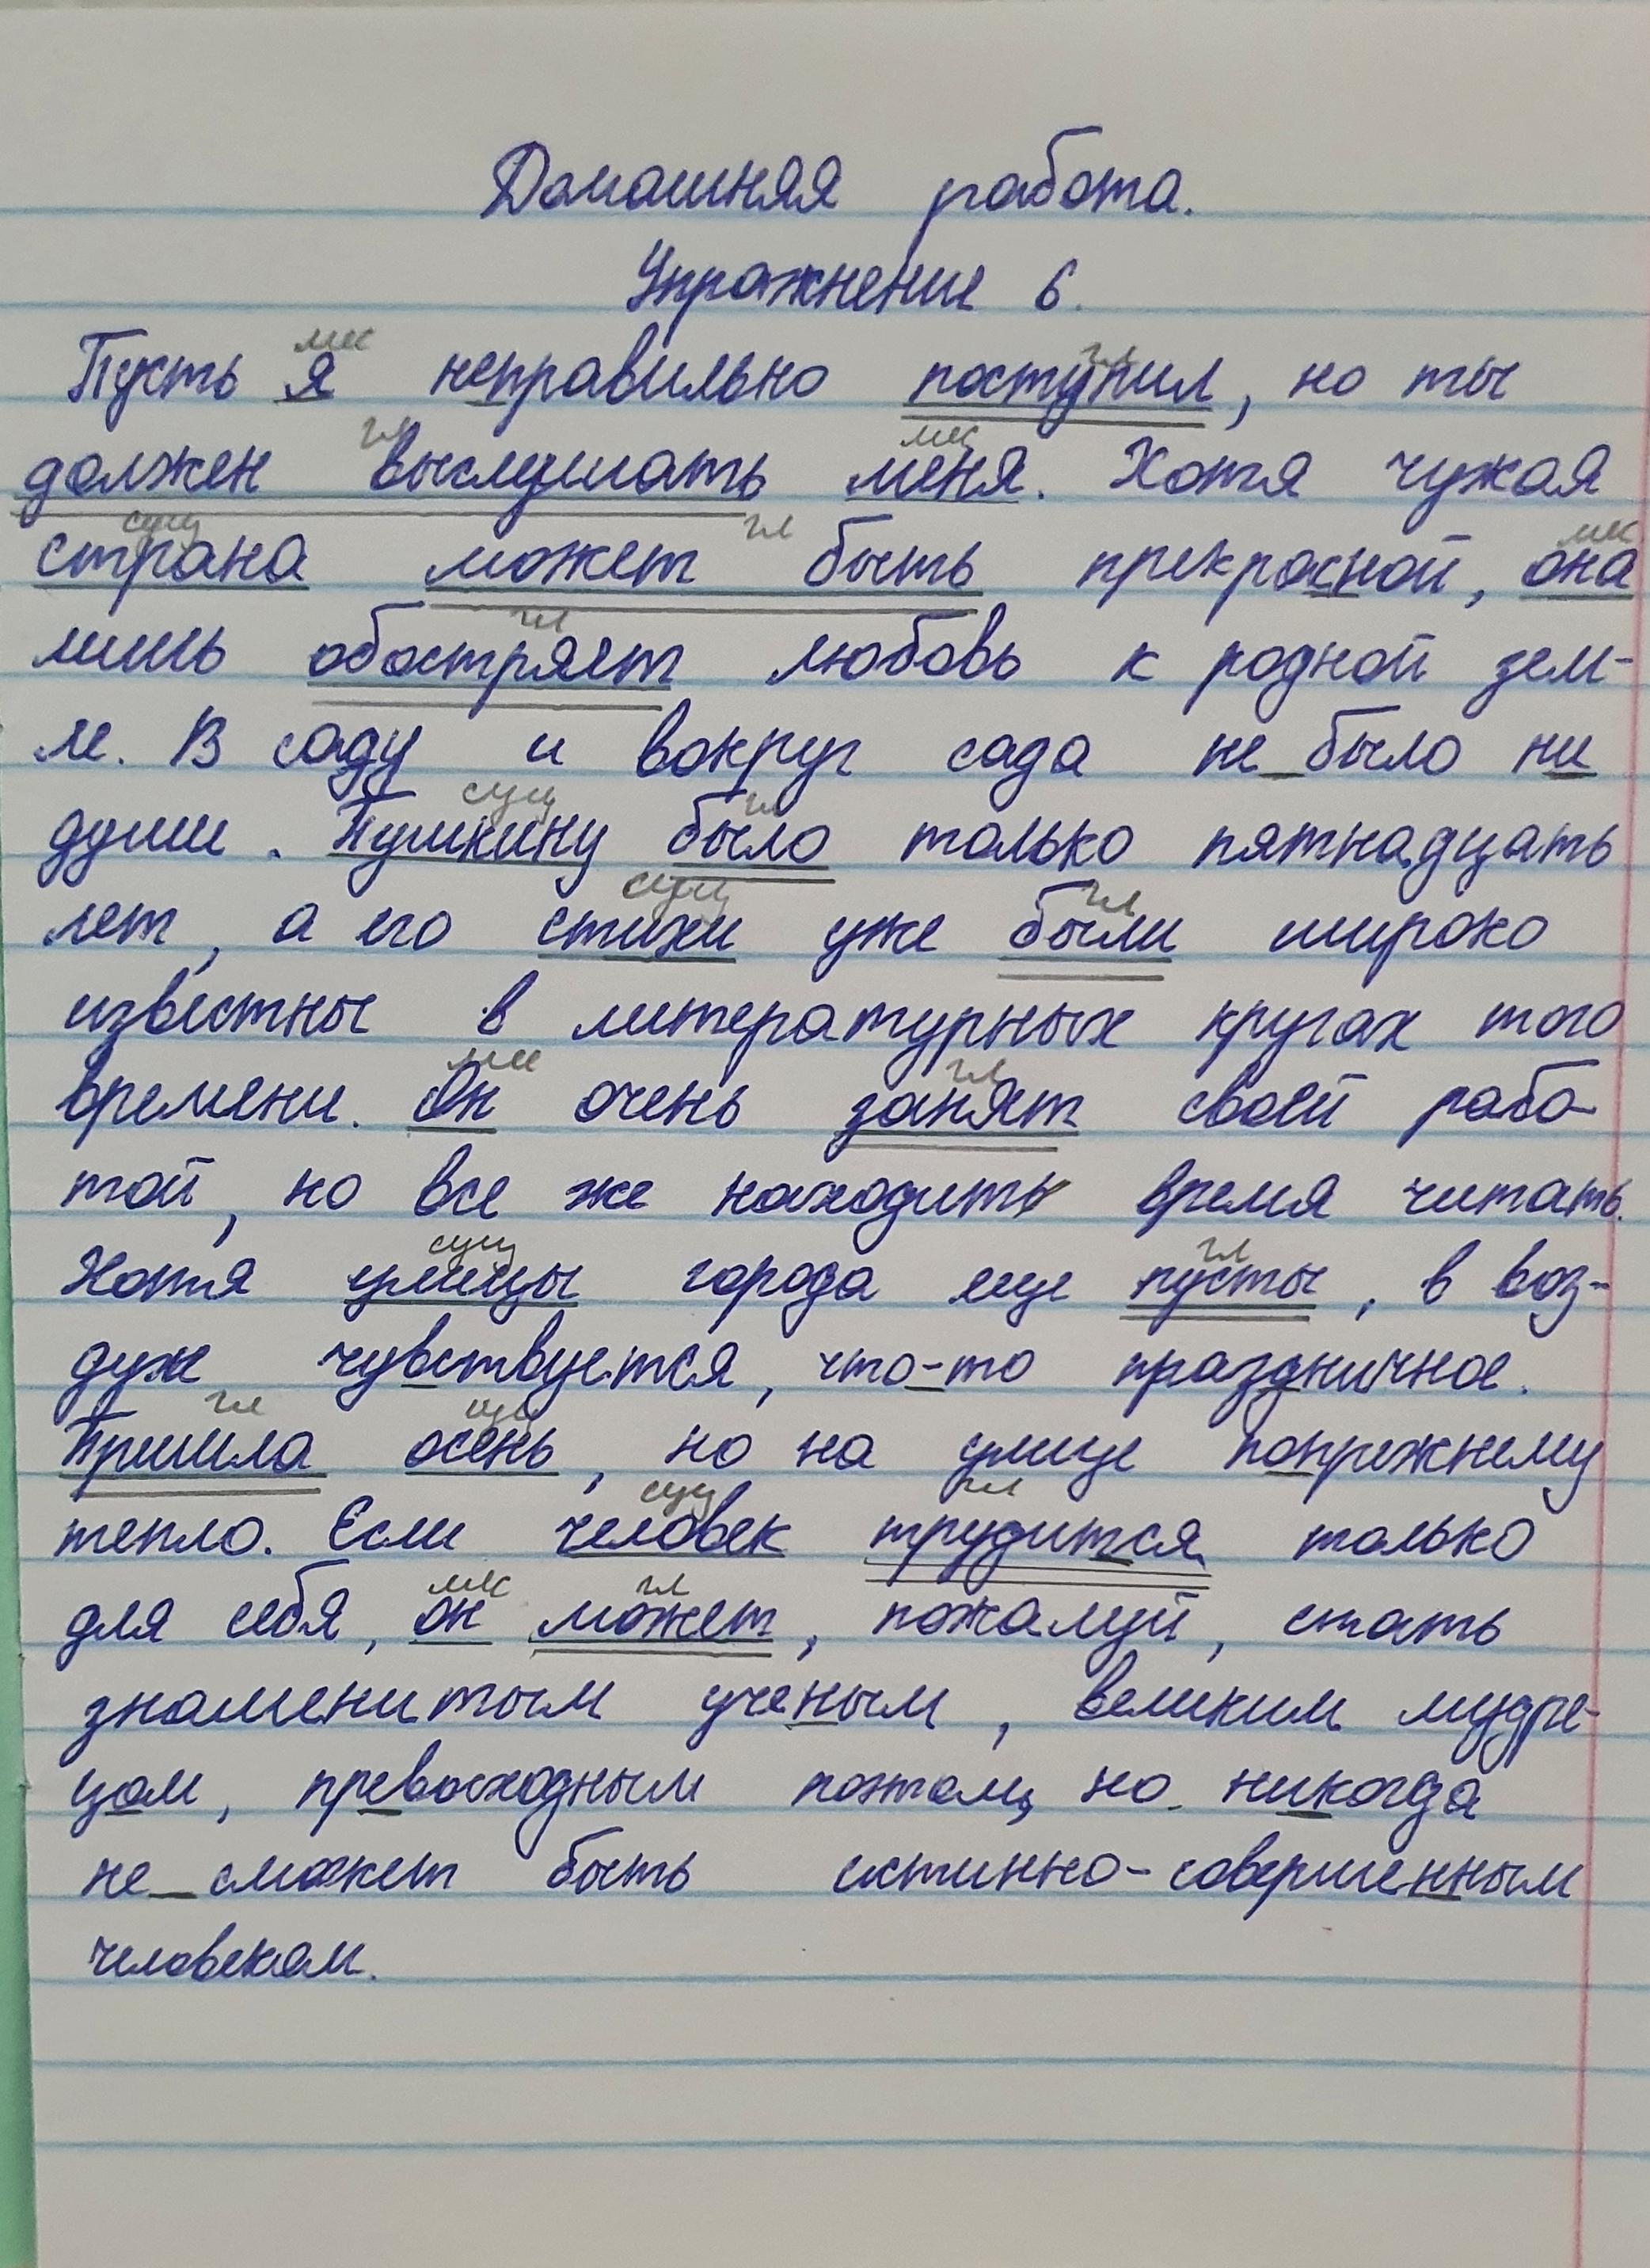 Домашняя работа.
Упражнение 6.
мс гл
Пусть я неправильно поступил, но ты
гл мс
должен выслушать меня. Хотя чужая
сущ гл мс
страна может быть прекрасной, она
гл
лишь обостряет любовь к родной зем-
ле. В саду и вокруг сада не было ни
сущ гл
души. Пушкину было только пятнадцать
сущ гл
лет, а его стихи уже были широко
известны в литературных кругах того
мс гл
времени. Он очень занят своей рабо-
той, но все же находить время читать.
сущ гл
Хотя улицы города еще пусты, в воз-
духе чувствуется, что-то праздничное.
гл сущ
Пришла осень, но на улице попрежнему
сущ гл
тепло. Если человек трудится только
мс гл
для себя, он может, пожалуй, стать
знаменитым ученым, великим мудре-
цом, превосходным поэтом, но никогда
не сможет быть истинно-совершенным
человеком.